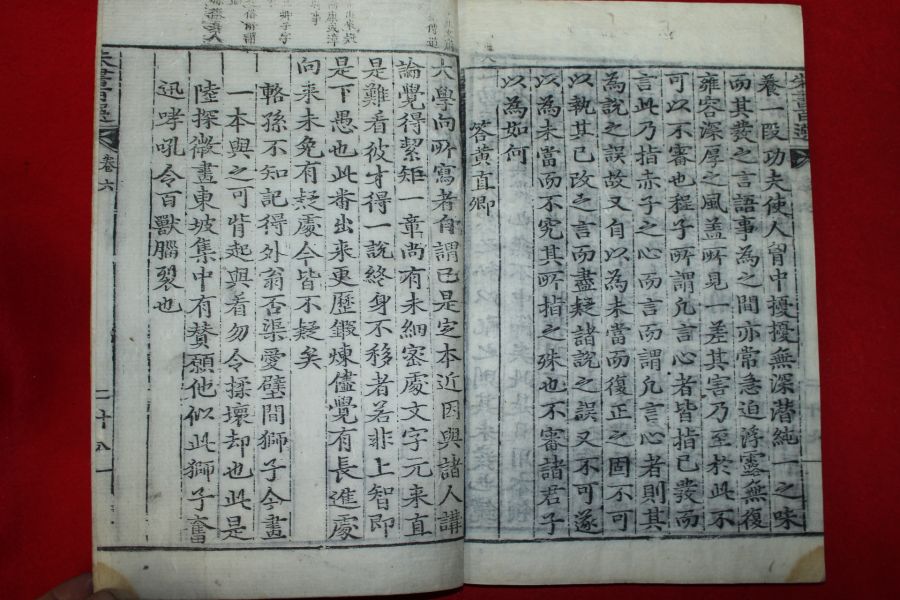 養一段功夫使人胷中擾擾無深潛純一之味
而其發之言語事為之間亦常急迫浮露無復
雍容深厚之風盖所見一差其害乃至於此不
可以不審也程子所謂凡言心者皆指已發而
言此乃指赤子之心而言而謂凡言心者則其
為說之誤故又自以為未當而復正之固不可
以執其已改之言而盡疑諸說之誤又不可遂
以為未當而不究其所指之殊也不審諸君子
以為如何
答黃直卿
大學向所寫者自謂已是定本近因與諸人講
論覺得絜矩一章尚有未細密處文字元来直
是難看彼才得一說終身不移者若非上智即
是下愚也此番出来更歷鍛煉儘覺有長進處
向来未免有疑處今皆不疑矣
輅孫不知記得外翁否渠愛壁間獅子今畫
一本與之可背起與看勿令揉壞却也此是
陸探微畫東坡集中有贊願他似此獅子奮
迅哮吼令百獸腦裂也
卷六
二十八